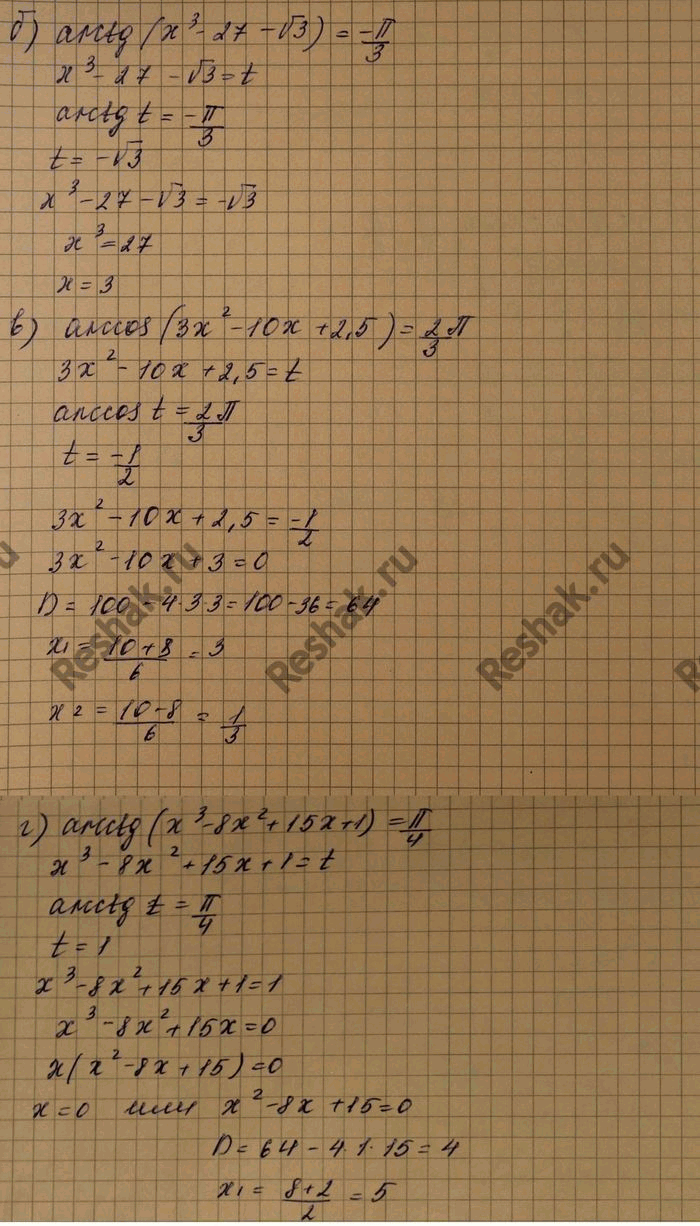 б) arctg (x³ - 27 - √3) = -π/3
x³ - 27 - √3 = t
arctg t = -π/3
t = -√3
x³ - 27 - √3 = -√3
x³ = 27
x = 3
в) arccos (3x² - 10x + 2,5) = 2π/3
3x² - 10x + 2,5 = t
arccos t = 2π/3
t = -1/2
3x² - 10x + 2,5 = -1/2
3x² - 10x + 3 = 0
D = 100 - 4·3·3 = 100 - 36 = 64
x₁ = (10 + 8)/6 = 3
x₂ = (10 - 8)/6 = 1/3
Reshak.ru Reshak.ru Reshak.ru
г) arctg (x³ - 8x² + 15x + 1) = π/4
x³ - 8x² + 15x + 1 = t
arctg t = π/4
t = 1
x³ - 8x² + 15x + 1 = 1
x³ - 8x² + 15x = 0
x(x² - 8x + 15) = 0
x = 0 или x² - 8x + 15 = 0
D = 64 - 4·1·15 = 4
x₁ = (8 + 2)/2 = 5